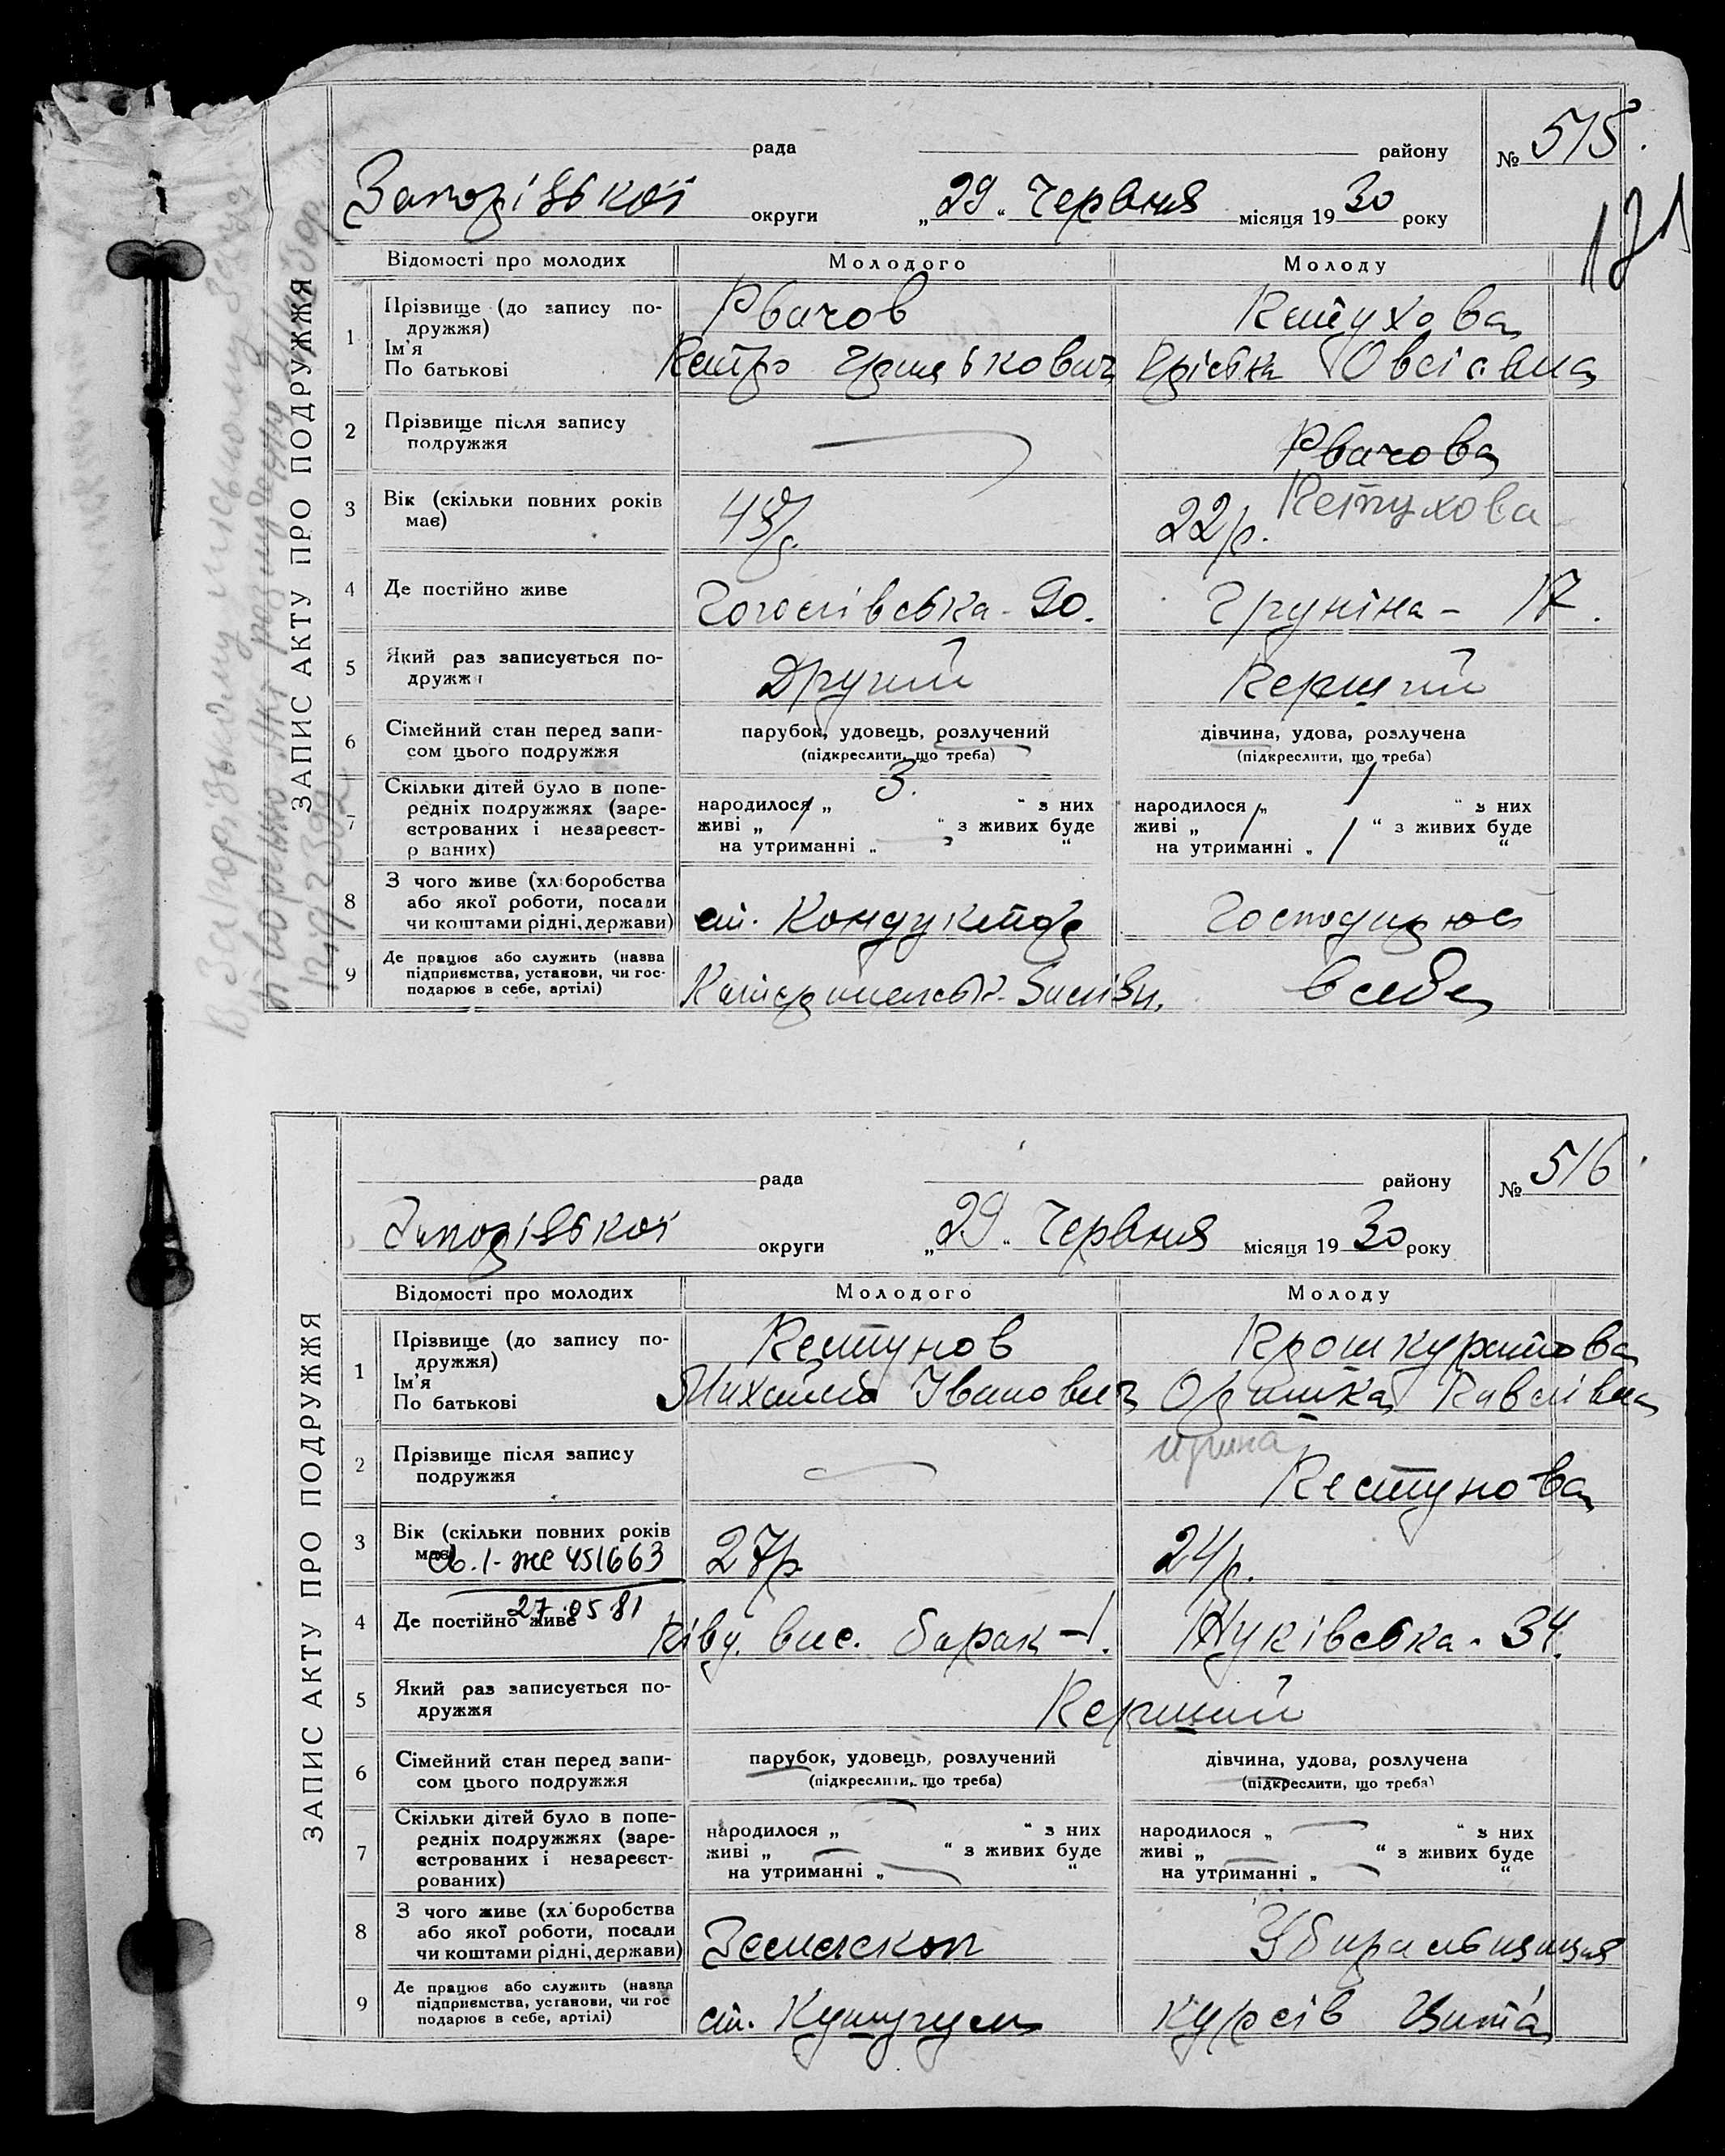 ЗАПИС АКТУ ПРО ПОДРУЖЖЯ
рада району № 515.
Запорізької округи „29“ Червня місяця 1930 року
181
Відомості про молодих Молодого Молоду
1 Прізвище (до запису по-
дружжя)
Ім'я
По батькові
Рвачов
Петро
Петухова
Овсіевна
2 Прізвище після запису
подружжя
Рвачова
Петухова
3 Вік (скільки повних років
має)
22р.
4 Де постійно живе
Гоголівська - 90.
Груніна - 17.
5 Який раз записується по-
дружжя
Другий
Перший
6 Сімейний стан перед запи-
сом цього подружжя
парубок, удовець, розлучений
(підкреслити, що треба)
дівчина, удова, розлучена
(підкреслити, що треба)
7 Скільки дітей було в попе-
редніх подружжях (заре-
єстрованих і незареєст-
р ваних)
3.
народилося „ “ з них
живі „ “ з живих буде
на утриманні „ “
народилося „ “ з них
живі „ “ з живих буде
на утриманні „ “
8 З чого живе (хліборобства
або якої роботи, посади
чи коштами рідні, держави)
ст. Кондуктор
9 Де працює або служить (назва
підприємства, установи, чи гос-
подарює в себе, артілі)
в себе
В Запорізькому міському
12.9.239
ЗАПИС АКТУ ПРО ПОДРУЖЖЯ
рада району № 516
Запорізької округи „29“ Червня місяця 1930 року
Відомості про молодих Молодого Молоду
1 Прізвище (до запису по-
дружжя)
Ім'я
По батькові
Пестунов
Михайло Іванович
Прошкуратова
Оришка Павлівна
ирина
2 Прізвище після запису
подружжя
Пестунова
3 Вік (скільки повних років
має)
св. I-ЖС 451663
27р
24р.
4 Де постійно живе
27.05 81
Півд. вис. барак - 1.
Жуківська - 34.
5 Який раз записується по-
дружжя
Перший
6 Сімейний стан перед запи-
сом цього подружжя
парубок, удовець, розлучений
(підкреслити, що треба)
дівчина, удова, розлучена
(підкреслити, що треба)
7 Скільки дітей було в попе-
редніх подружжях (заре-
єстрованих і незареєст-
рованих)
народилося „ “ з них
живі „ “ з живих буде
на утриманні „ “
народилося „ “ з них
живі „ “ з живих буде
на утриманні „ “
8 З чого живе (хліборобства
або якої роботи, посади
чи коштами рідні, держави)
Землекоп
9 Де працює або служить (назва
підприємства, установи, чи гос
подарює в себе, артілі)
ст. Кушугум
курсів